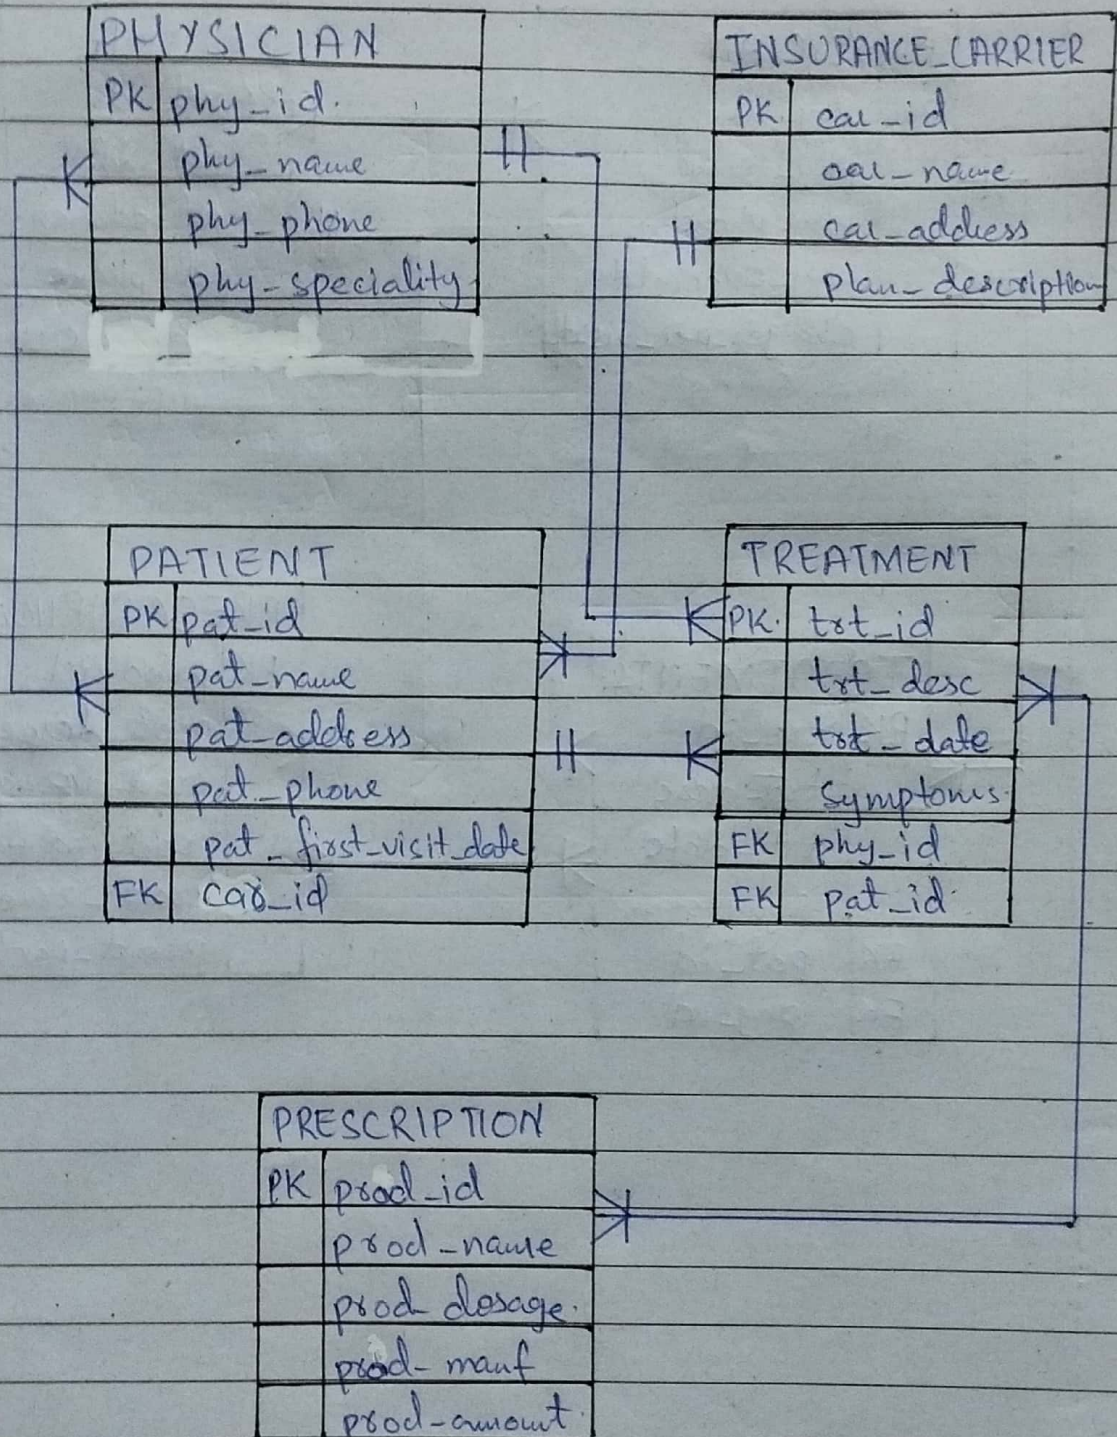 PHYSICIAN
PK phy_id.
phy_name
phy_phone
phy_speciality
INSURANCE_CARRIER
PK car_id
car_name
car_address
plan_description
PATIENT
PK pat_id
pat_name
pat_address
pat_phone
pat_first_visit_date
FK car_id
TREATMENT
PK. trt_id
trt_desc
trt_date
Symptoms
FK phy_id
FK pat_id
PRESCRIPTION
PK prod_id
prod_name
prod_dosage
prod_manf
prod_amount